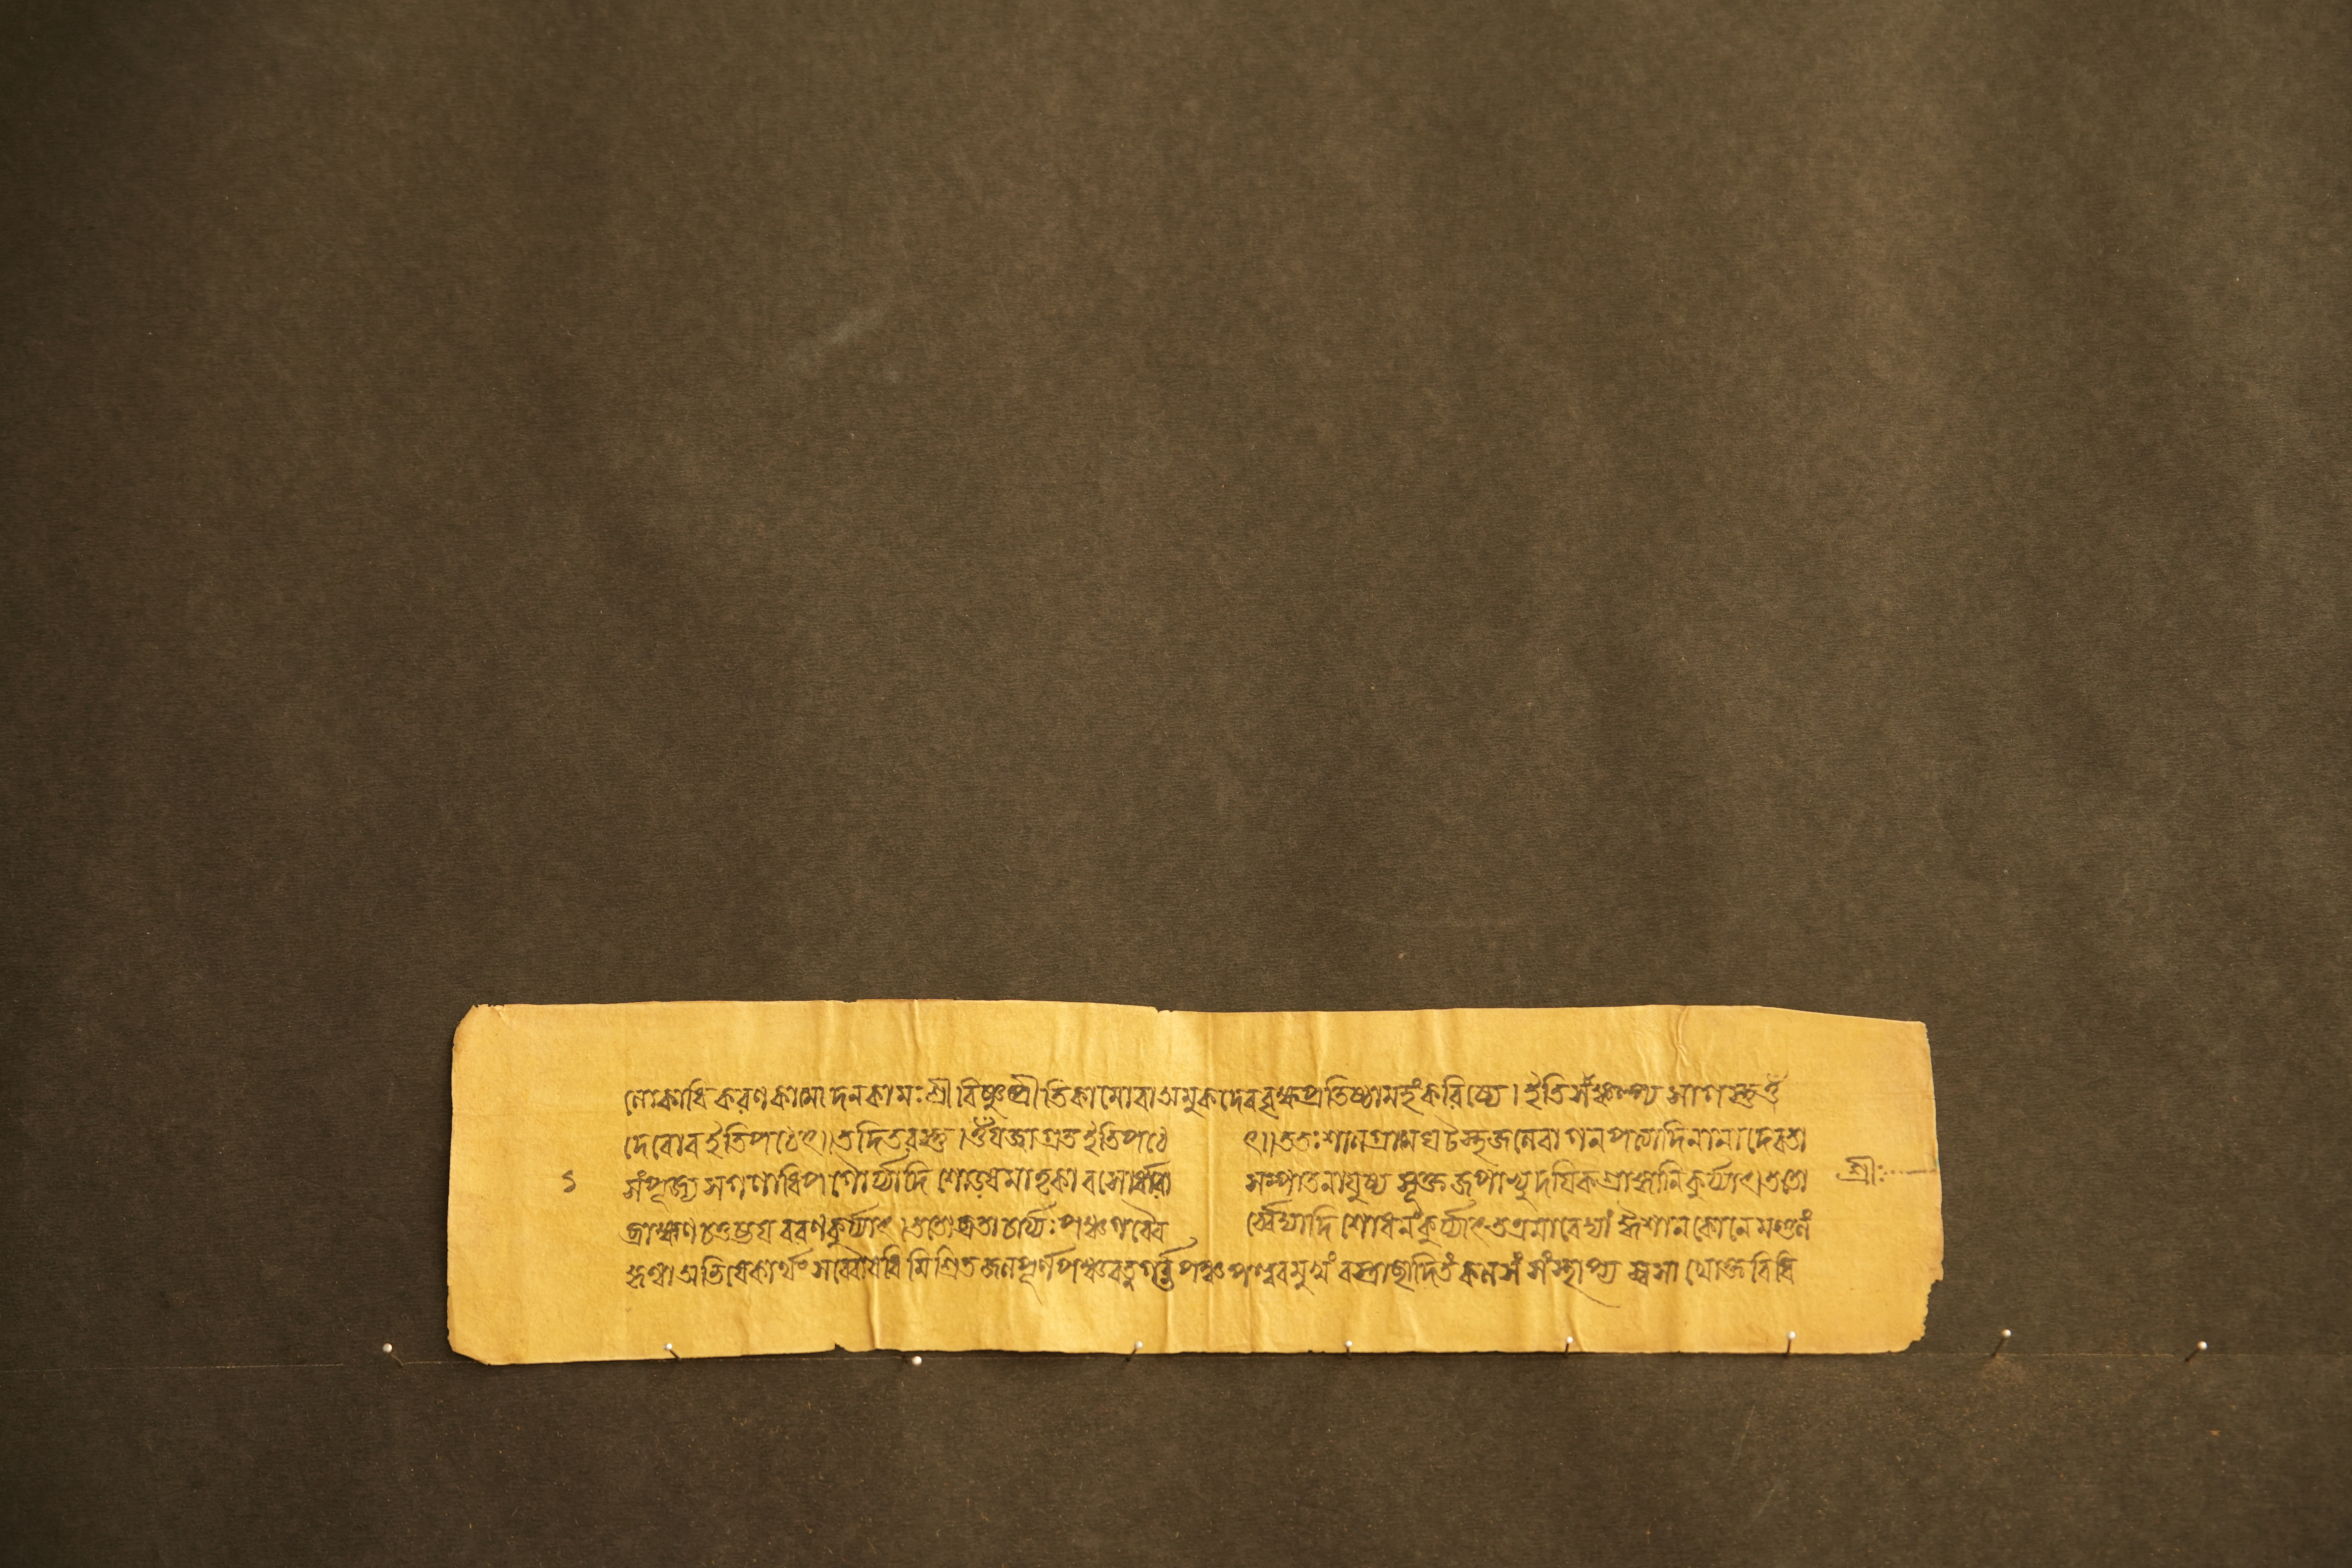 লোকাধিকরণকামো দনকামঃ শ্রীবিষ্ণুপ্রীতিকামোবা অমুকদেববৃক্ষপ্রতিষ্ঠামহং করিষ্যে। ইতি সংকল্প্য
দেবোব ইতি পঠেৎ।। তদিতরস্তু। ওঁ যজ্জাগ্রত ইতি পঠে ৎ।। ততঃ শালগ্রামে ঘটস্থজলেবা গনপত্যাদি নানাদেবতা
সংপূজ্য সগণাধিপ গৌর্য্যাদি ষোড়শমাতৃকা বসোর্ধারা সম্পাতনাযুষ্য সূক্তজপাভ্যুদয়িকশ্রাদ্ধানি কুর্য্যাৎ। ততো
শ্রীঃ
ব্রাহ্মণ চতুষ্টয় বরণ কুর্য্যাৎ। ততো ব্রতাচার্য্যঃ পঞ্চগব্যৈ র্ব্বেদ্যাদি শোধনং কুর্য্যাৎ তত্রমাবেদ্যাং ঐশানকোনে মণ্ডলং
কৃত্বা অভিষেকার্থং সর্ব্বৌষধি মিশ্রিত জলপূর্ণ পঞ্চরত্নগর্ব্ভ পঞ্চপল্লবমুখং বস্ত্রাচ্ছাদিতং কলসং সংস্থাপ্য স্বসাখোক্ত বিধি